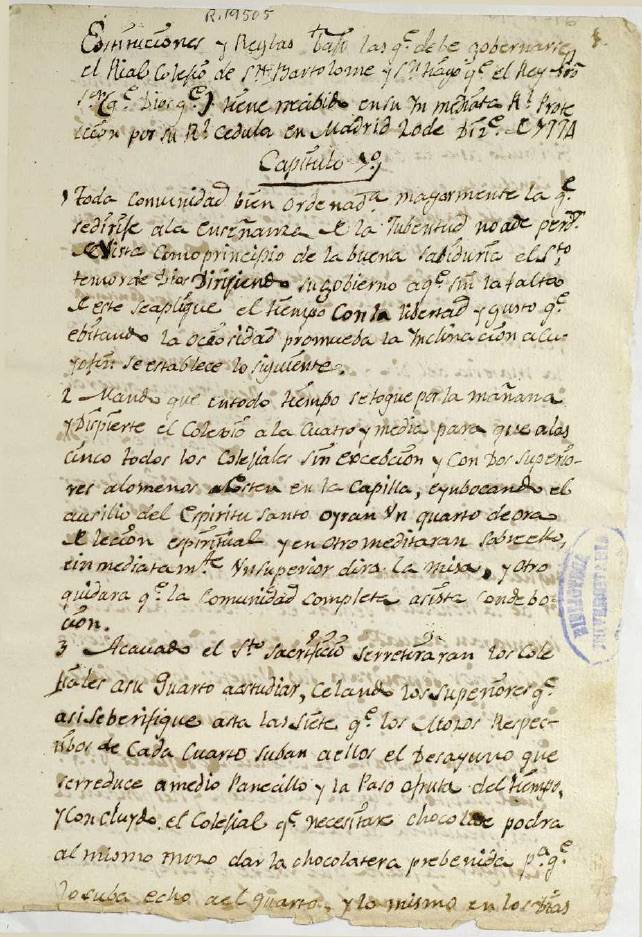 R.19505
Estituciones y Reglas bajo las q.e debe gobernarse
el Rial Colesio de Sn Bartolome y S.n tiago q.e el Rey
S.or (q.e Dios g.e) tiene recibido en su Ynmediata R.l Prote
ccion por su R.l cedula en Madrid 20 de Diz.e de 1774
Capitulo 1o,
1 toda comunidad bien Ordenad.a mayormente la q.e
sedirije ala enseñanza de la Jubentud no ade perd.r
de Vista como principio de la buena sabiduria el S.to
temor de Dios Dirijiendo su gobierno a q.e sin la falta
de este seaplique el tiempo Con la libertad y gusto q.e
ebitando la ociosidad promueba la Ynclinacion a Cu-
yo fin se establece lo siguiente.
2 Mando que entodo tiempo setoque por la mañana
y Dispierte el Colexio a la Cuatro y media para que alas
cinco todos los Colesiales sin excebcion y Con Dos superio-
res alomenos en la Capilla, eynbocando el
ausilio del Espiritu santo oyran Yn quarto de ora
de lecion espiritual y en otro meditaran sabre ello,
einmediatam.te Ynsuperior dira la misa, y otro
quidara q.e la Comunidad completa asista con debo-
cion.
3 Acavado el S.to sacrificio serretiraran los Cole
siales asu Quarto aestudiar, Celando los superiores q.e
asi se berifique asta las siete q.e los Mozos Respec-
tibos de Cada Cuarto suban aellos el Desayuno que
serreduce amedio Panecillo y la Pasa ofruta del tiempo,
y Concluydo el Colesial q.e necesitare chocolate podra
al mismo mozo dar la chocolatera prebenida p.a q.e
lo suba echo ael Quarto, y lo mismo en los Dias